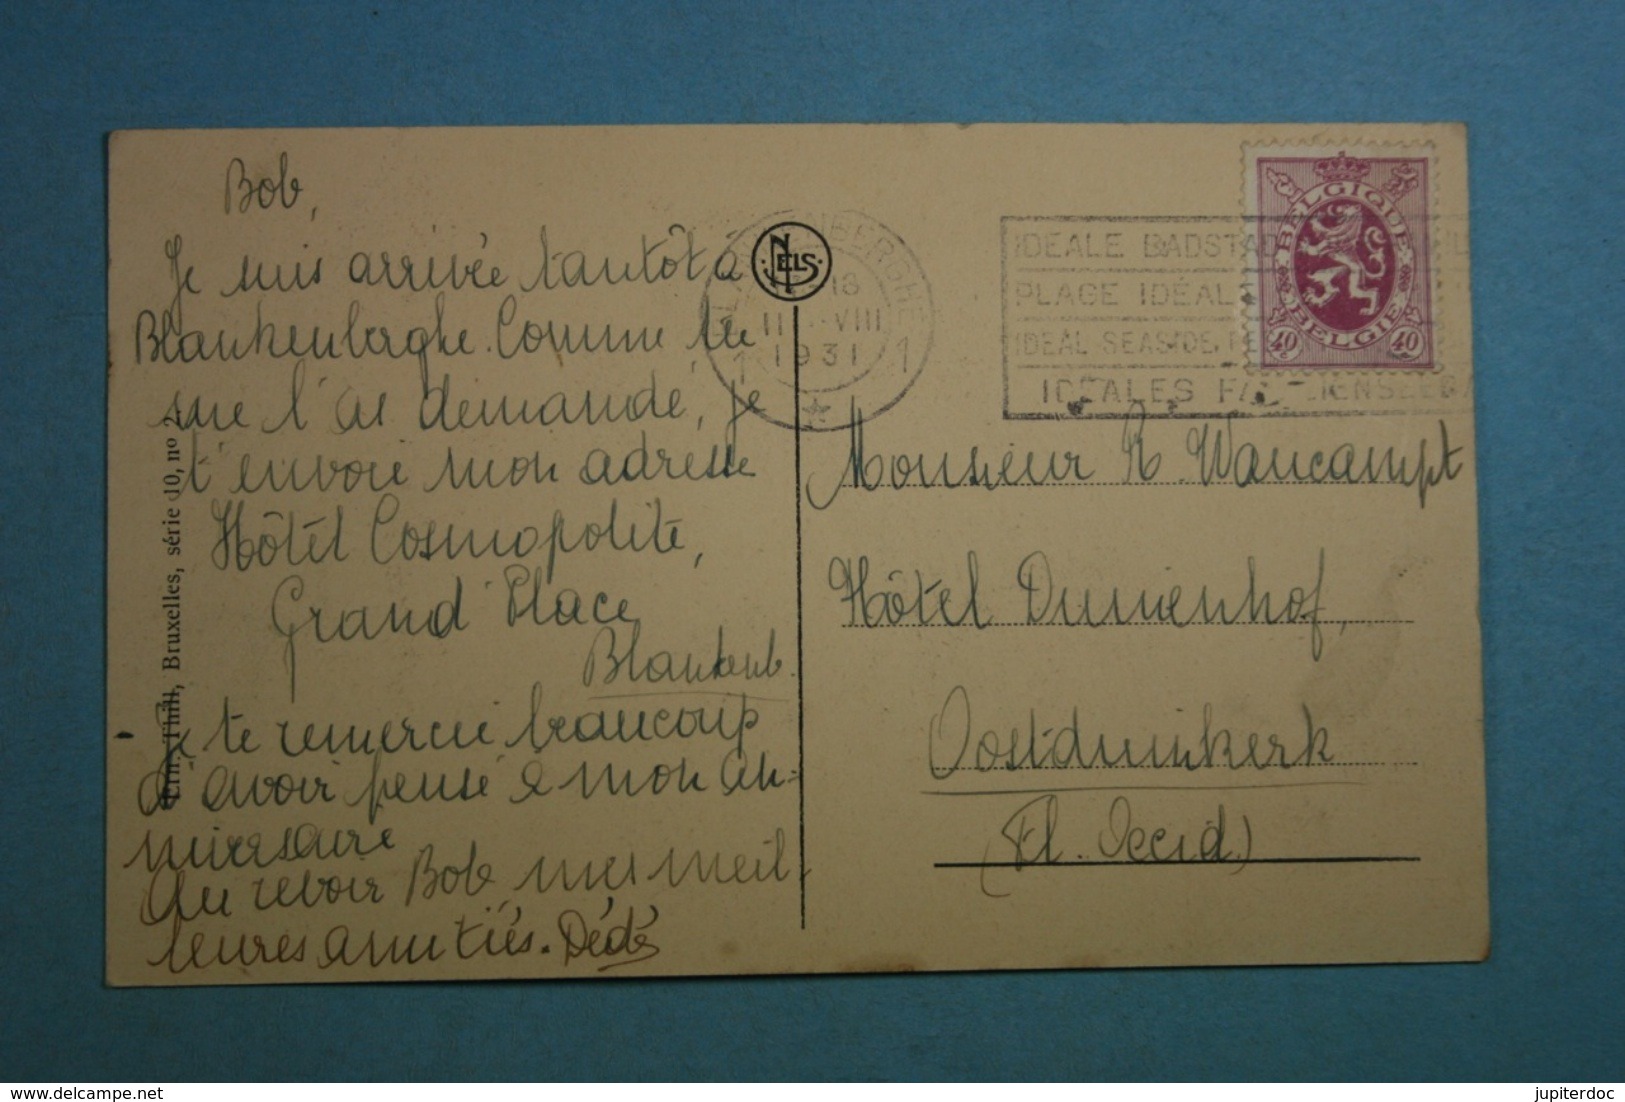 Bob,
Je suis arrivée tantôt à
Blankenberghe. Comme tu
me l'as demandé, je
t'envoie mon adresse
Hôtel Cosmopolite,
Grand'Place
Blankenb.
Je te remercie beaucoup
d'avoir pensé à mon an-
niversaire
Au revoir Bob, mes meil-
leures amitiés. Dédé
Ern. Thill, Bruxelles, série 10, nº 2
NELS
BLANKENBERGHE
18
VIII
1931
1 1
IDEALE BADSTAD
PLAGE IDÉALE
IDEAL SEASIDE
IDEALES FA IENSEEBA
BELGIQUE
BELGIE
40 c 40 c
Monsieur R. Waucampt
Hôtel Duinenhof,
Oostduinkerk
(Fl. Occid.)
delcampe.net
jupiterdoc